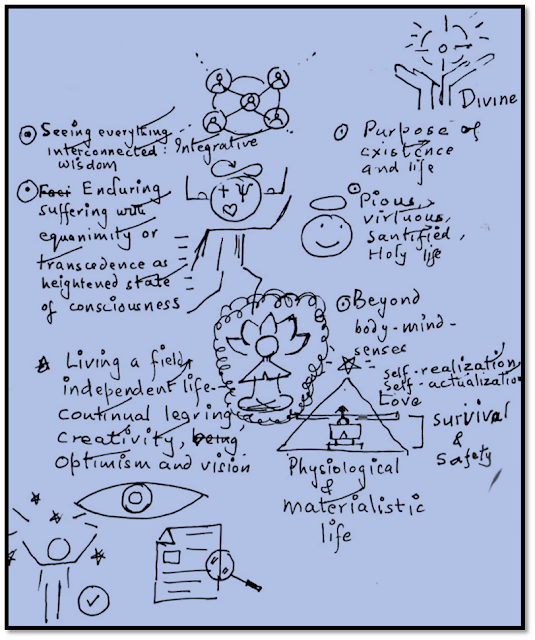 Divine
Seeing everything
interconnected: Integrative
wisdom
Purpose of
existence
and life
Foci Enduring
suffering with
equanimity or
transcedence as
heightened state
of consciousness
Ψ
Pious,
virtuous,
santified,
Holy life
Beyond
body-mind-
senses
self-realization,
self-actualization
Love
Survival
&
Safety
Living a field
independent life-
continual legring
Creativity, being
Optimism and vision
Physiological
&
materialistic
life